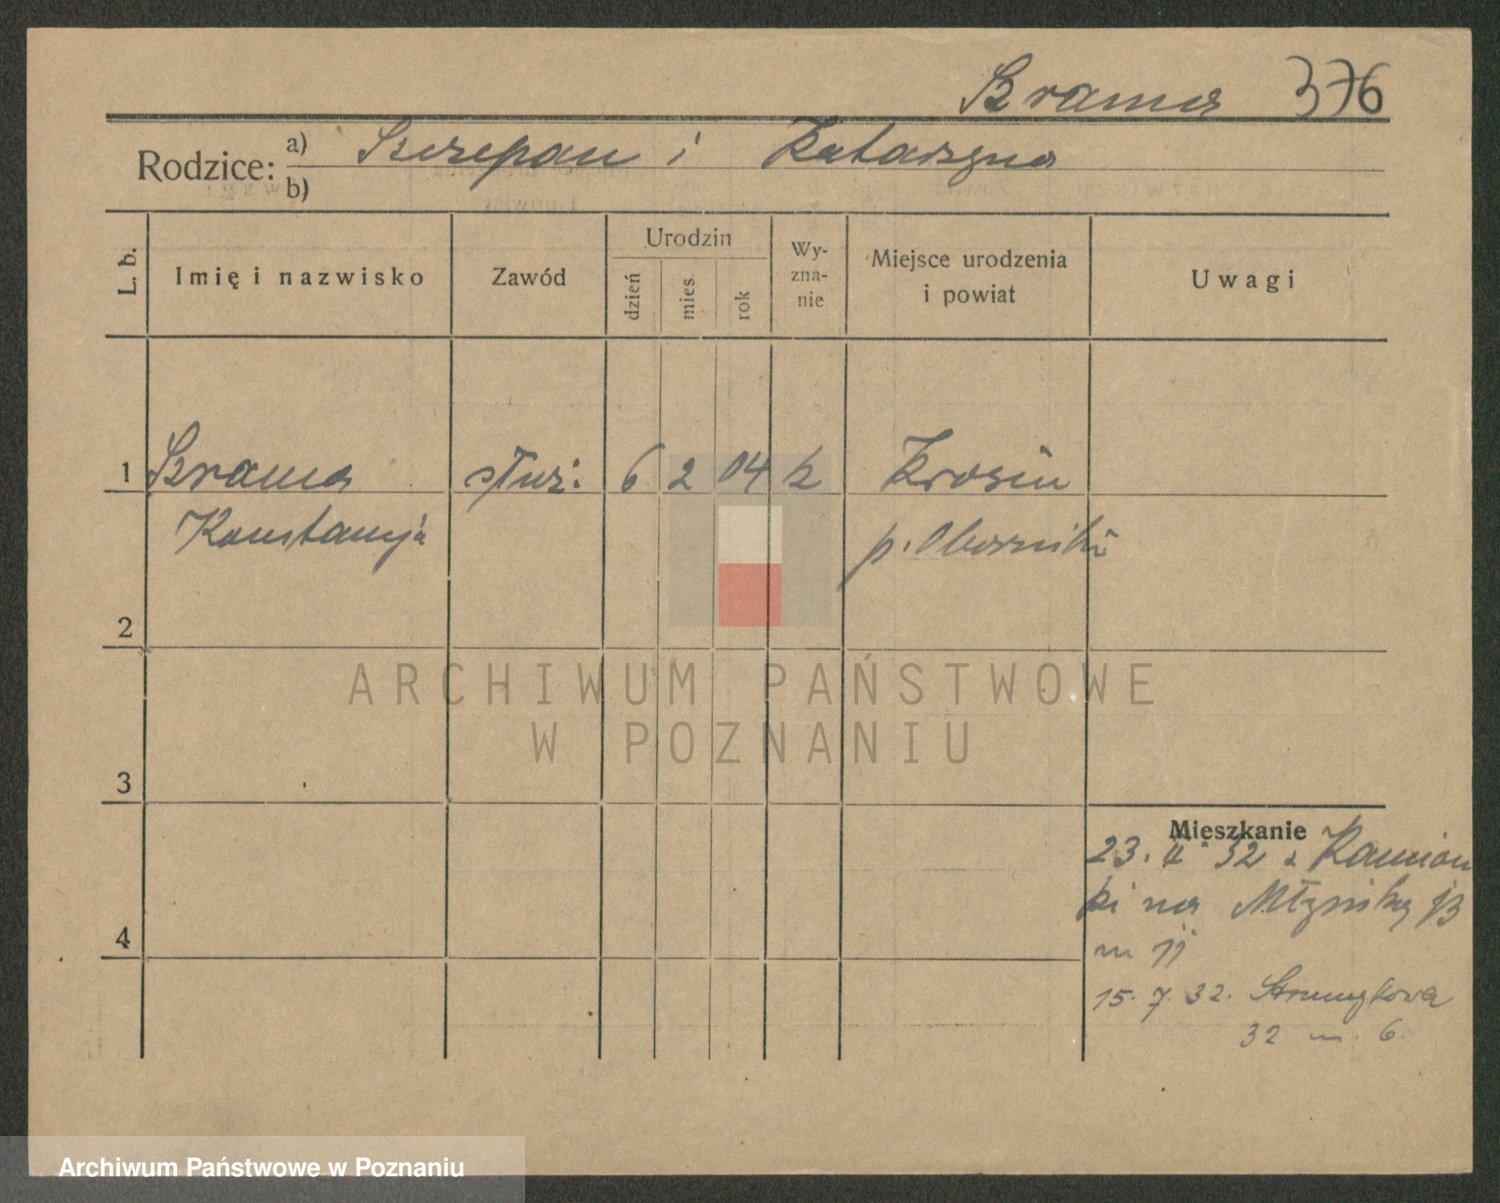 Szrama 376
Rodzice: a) Szczepan i Katarzyna
b)
L. b. Imię i nazwisko Zawód Urodzin dzień mies rok Wy-zna-nie Miejsce urodzenia i powiat Uwagi
1 Szrama służ. 6 2 04 k Krosin
Konstancja p. Oborniki
2
ARCHIWUM PAŃSTWOWE
W POZNANIU
3
Mieszkanie
23. 32 z Kamion
ki na Młyńską
m 11
4
15. 7. 32. Strumykowa
32 m. 6.
Archiwum Państwowe w Poznaniu